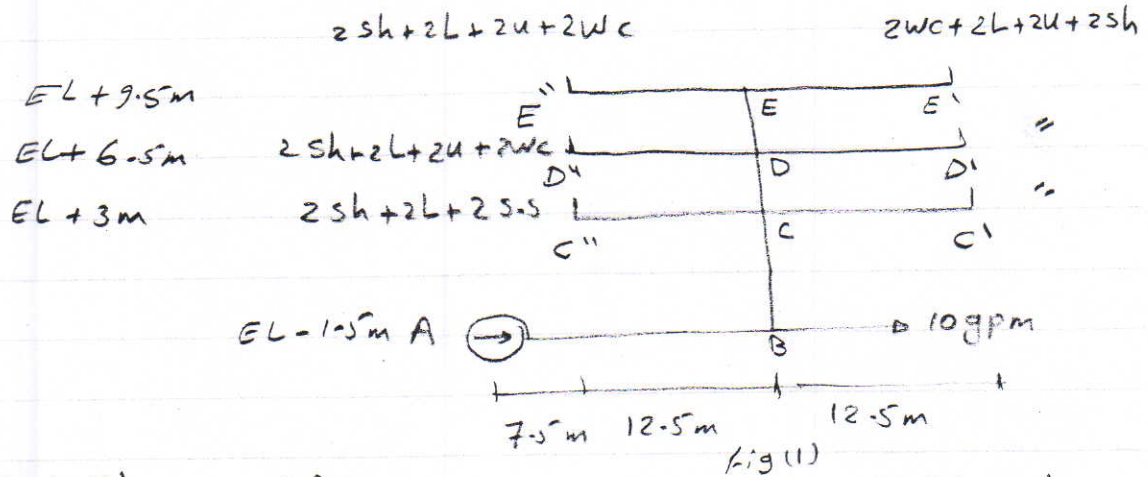 2Sh+2L+2U+2WC 2WC+2L+2U+2Sh
EL+9.5m
E" E E'
"
EL+6.5m 2Sh+2L+2U+2WC
D" D D'
"
EL+3m 2Sh+2L+2S.S
C" C C'
EL-1.5m A 10gpm
B
7.5m 12.5m 12.5m
fig(1)